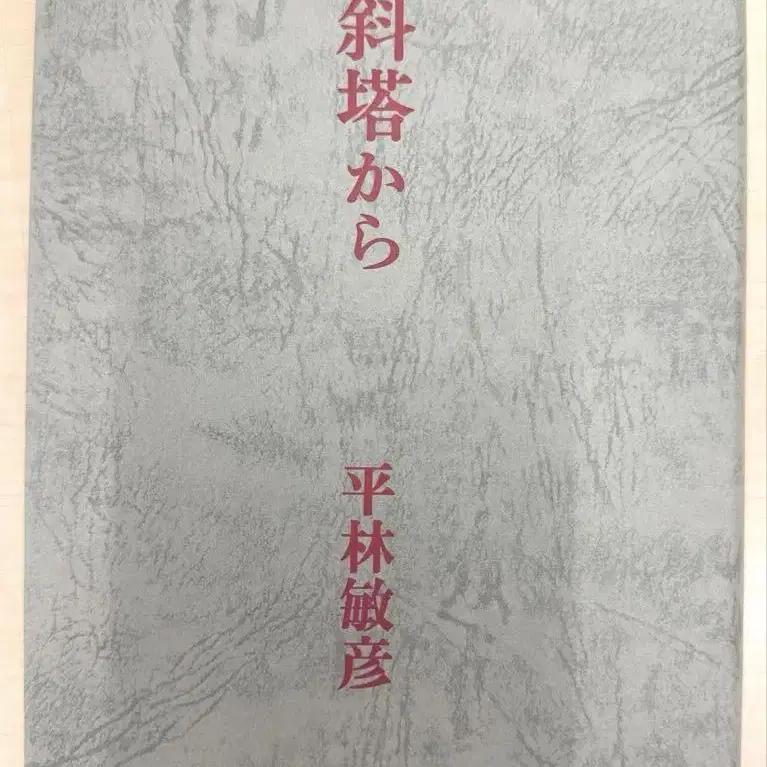 斜塔から
平林敏彦